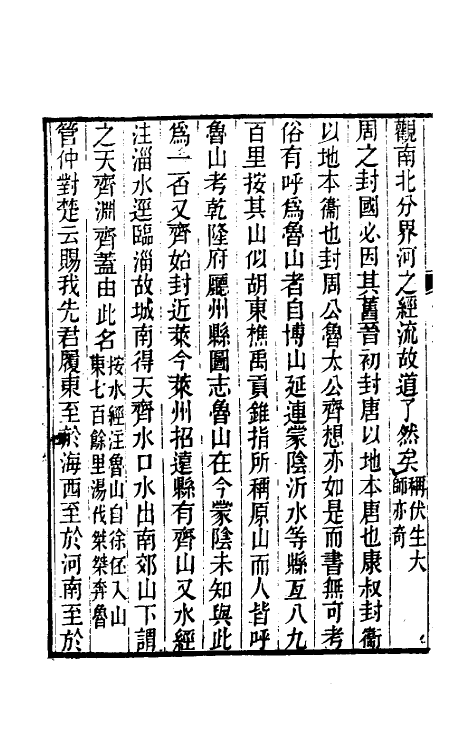 觀南北分界河之經流故道了然矣稱伏生大師亦奇
周之封國必因其舊晉初封唐以地本唐也康叔封衞
以地本衞也封周公魯太公齊想亦如是而書無可考
俗有呼為魯山者自博山延連蒙陰沂水等縣亙八九
百里按其山似胡東樵禹貢錐指所稱原山而人皆呼
魯山考乾隆府廳州縣圖志魯山在今蒙陰未知與此
為一否又齊始封近萊今萊州招遠縣有齊山又水經
注淄水逕臨淄故城南得天齊水口水出南郊山下謂
之天齊淵齊蓋由此名按水經注魯山自徐伾入山東七百餘里湯伐桀桀奔魯
管仲對楚云賜我先君履東至於海西至於河南至於